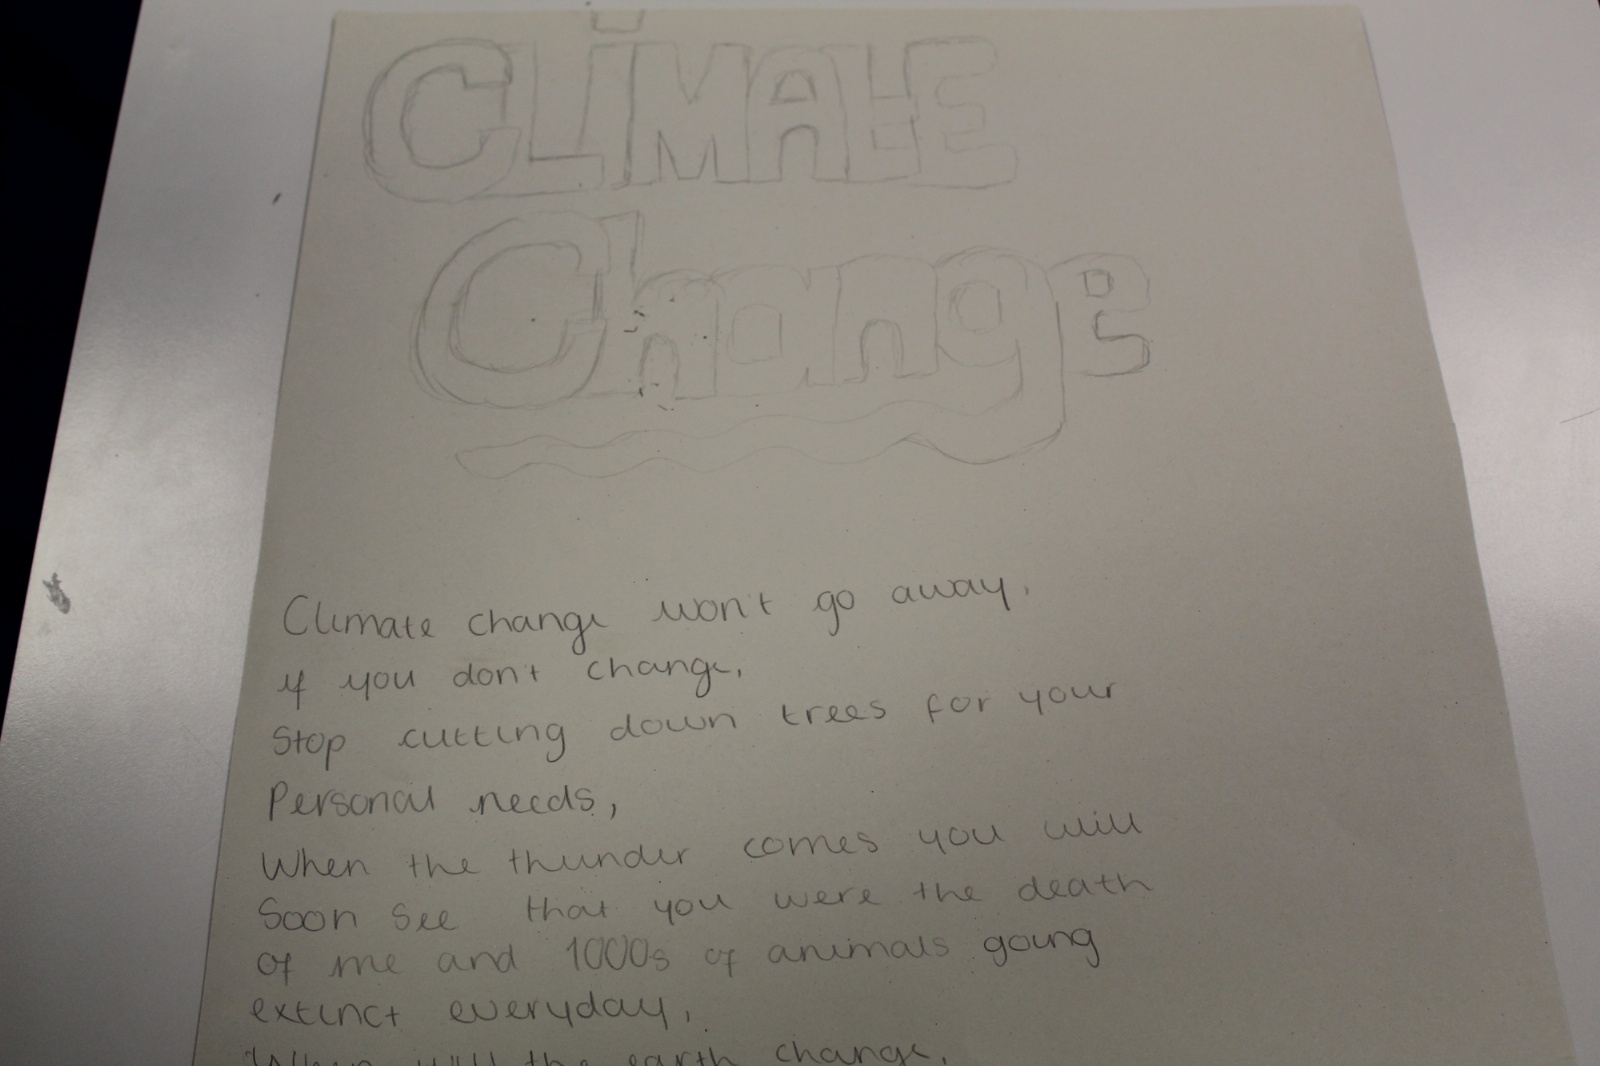 CLiMATE
Change
Climate change won't go away,
if you don't change,
Stop cutting down trees for your
Personal needs,
When the thunder comes you will
Soon See that you were the death
of me and 1000s of animals going
extinct everyday,
When will the earth change,